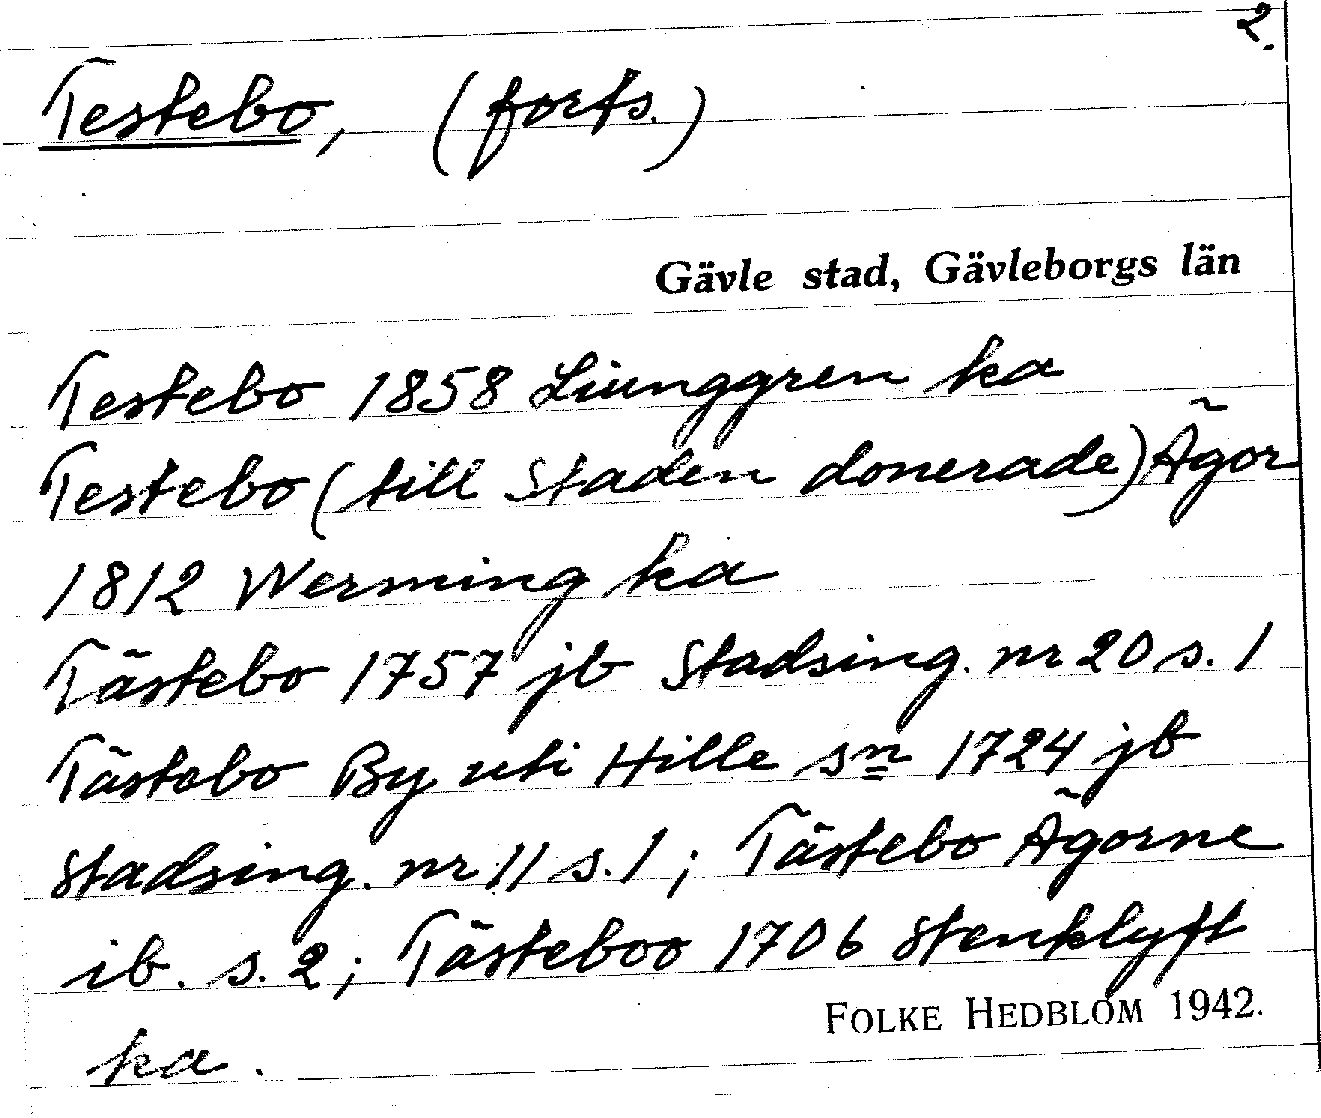 2.
Testebo, (forts.)
Gävle stad, Gävleborgs län
Testebo 1858 Liunggren ka
Testebo (till Staden donerade) Ägor
1812 Werming ka
Tästebo 1757 jb Stadsing. nr 20 s. 1
Tästebo By uti Hille sn 1724 jb
Stadsing. nr 11 s. 1; Tästebo Ägorne
ib. s. 2; Tästeboo 1706 Stenklyft
FOLKE HEDBLOM 1942.
ka.